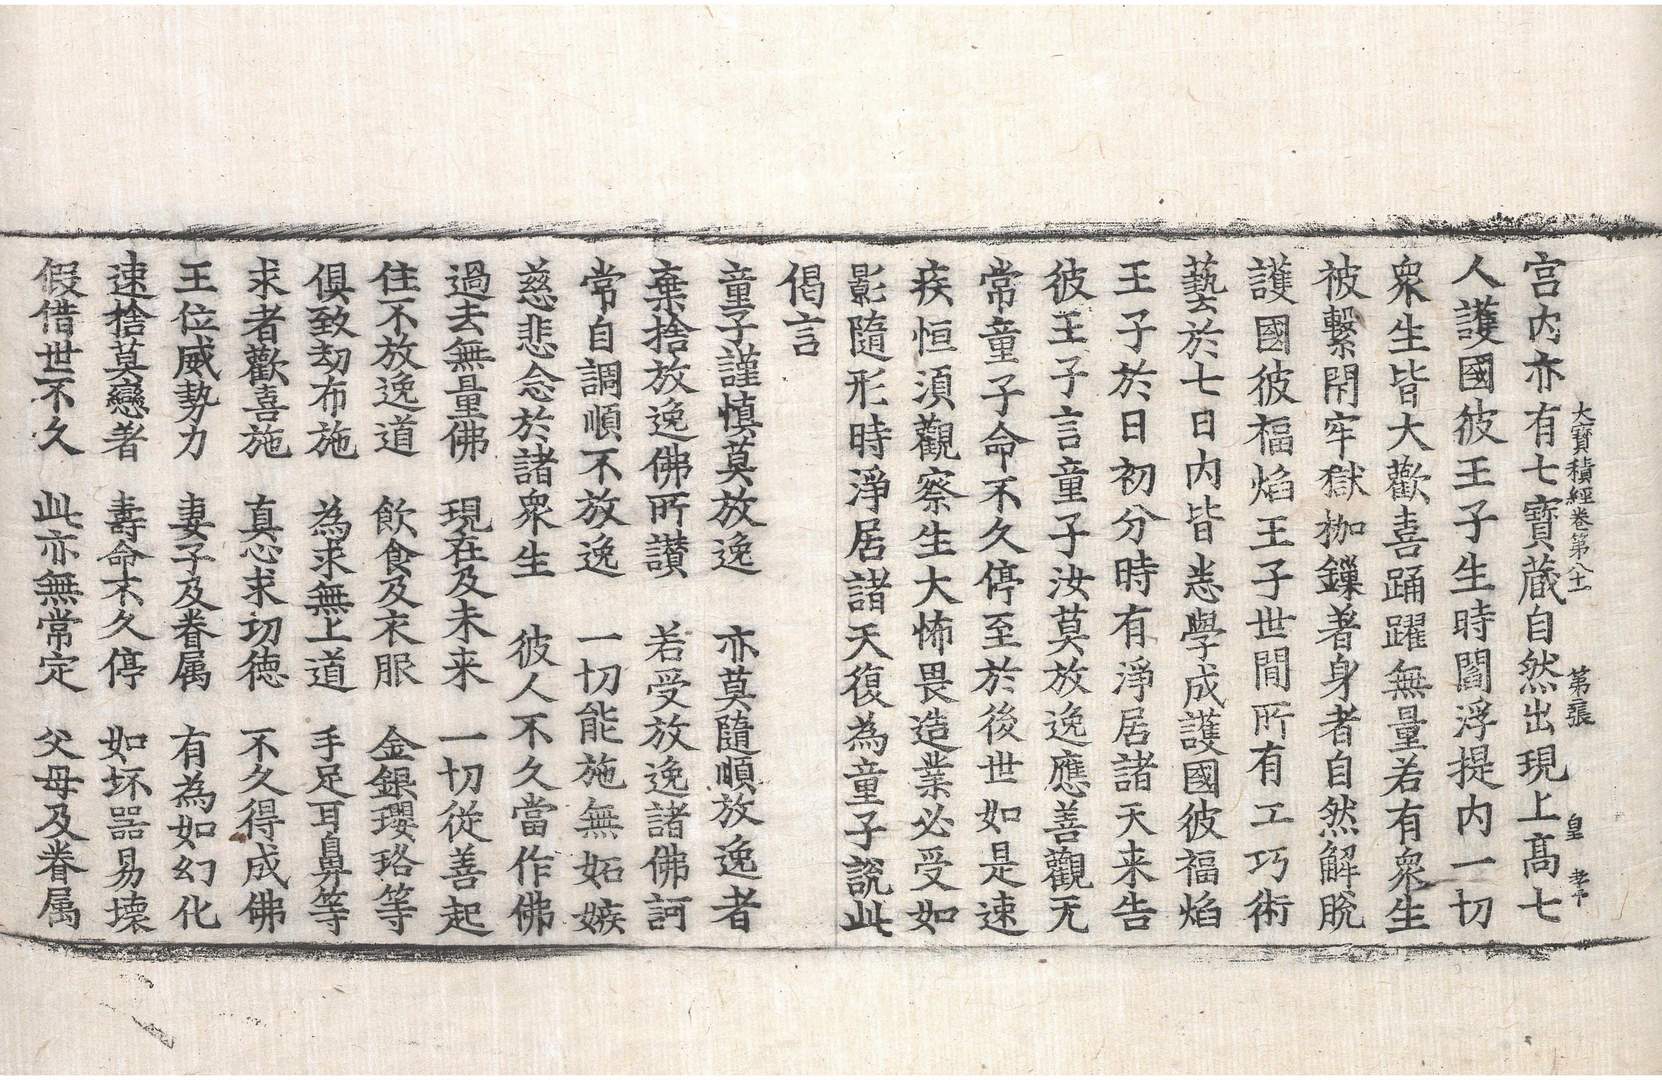 大寶積經卷第八十一　第二張　皇　孝中
宮内亦有七寶藏自然出現上髙七
人護國彼王子生時閻浮提内一切
衆生皆大歡喜踊躍無量若有衆生
被繫閇牢獄枷鏁著身者自然解脫
護國彼福焰王子世間所有工巧術
藝於七日内皆悉學成護國彼福焰
王子於日初分時有淨居諸天来告
彼王子言童子汝莫放逸應善觀无
常童子命不久停至於後世如是速
疾恒須觀察生大怖畏造業必受如
影隨形時淨居諸天復為童子說此
偈言
童子謹慎莫放逸　亦莫隨順放逸者
棄捨放逸佛所讃　若受放逸諸佛訶
常自調順不放逸　一切能施無妬嫉
慈悲念於諸衆生　彼人不久當作佛
過去無量佛　現在及未来　一切從善起
住不放逸道　飲食及衣服　金銀瓔珞等
俱致劫布施　為求無上道　手足耳鼻等
求者歡喜施　真心求功徳　不久得成佛
王位威勢力　妻子及眷属　有為如幻化
速捨莫戀著　壽命不久停　如坏器易壊
假借世不久　此亦無常定　父母及眷属